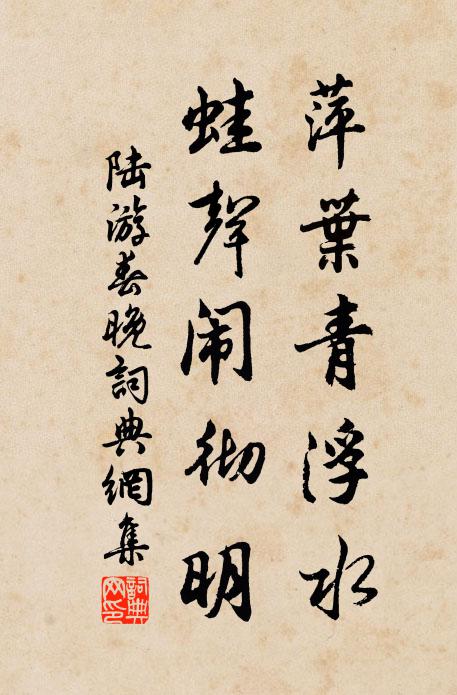 萍葉青浮水
蛙聲闹彻明
陆游春晚詞典網集
詞典网印